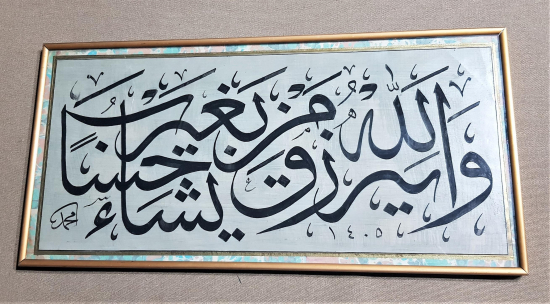 والله يرزق من يشاء بغير حساب
١٤٠٥
محمد